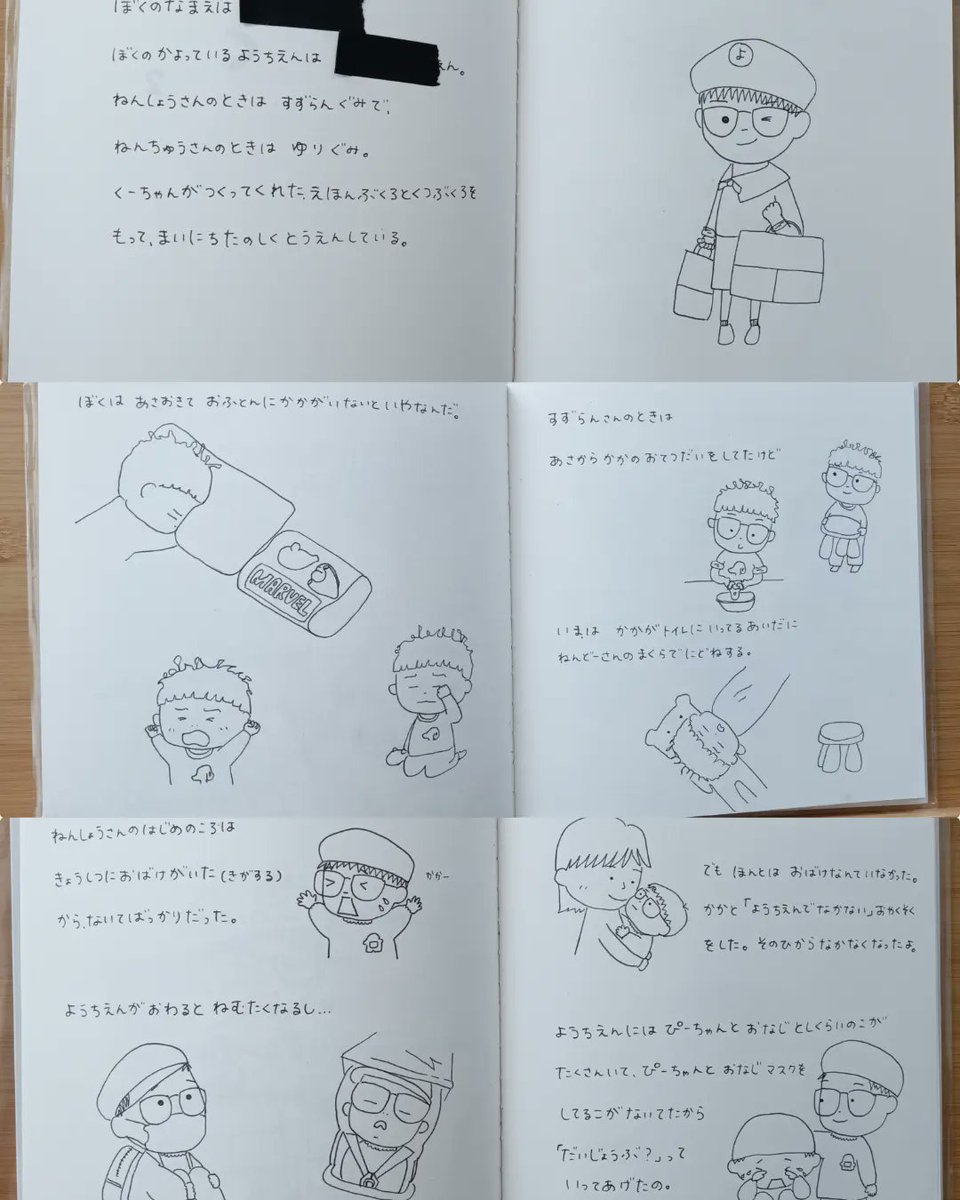 ぼくのなまえは
ぼくのかよっているようちえんは
えん。
ねんしょうさんのときは すずらんぐみで、
ねんちゅうさんのときは ゆりぐみ。
くーちゃんがつくってくれた、えほんぶくろとくつぶくろを
もって、まいにちたのしくとうえんしている。
よ
ぼくは あさおきて おふとんにかかがいないといやなんだ。
MARVEL
すずらんさんのときは
あさからかかのおてつだいをしてたけど
いまは かかがトイレにいってるあいだに
ねんどーさんのまくらでにどねする。
ねんしょうさんのはじめのころは
きょうしつにおばけがいた(きがする)
から、ないてばっかりだった。
かかー
ようちえんがおわると ねむたくなるし...
でも ほんとは おばけなんていなかった。
かかと「ようちえんでなかない」おやくそく
をした。そのひからなかなくなったよ。
ようちえんには ぴーちゃんと おなじとしくらいのこが
たくさんいて、ぴーちゃんと おなじマスクを
してるこがないてたから
「だいじょうぶ?」って
いってあげたの。